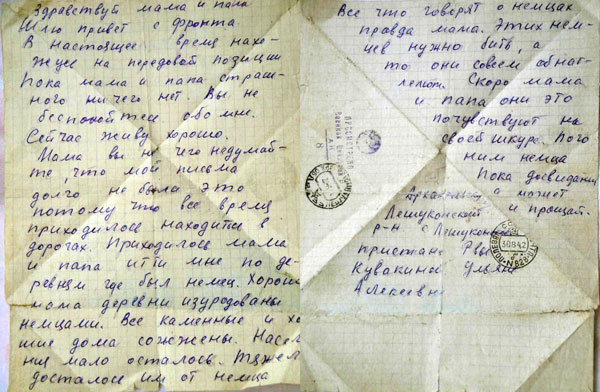 Здравствуй мама и папа
Шлю привет с фронта
В настоящее время нахо-
жусь на передовой позиции
Пока мама и папа страш-
ного ничего нет. Вы не
беспокойтесь обо мне.
Сейчас живу хорошо.
Мама вы не чего недумай-
те, что мой письма
долго не были это
потому что все время
приходилось находится в
дорогах. Приходилось мама
и папа итти мне по де-
ревням где был немец. Хорош
мама деревни изуродованы
немцами. Все каменные и хо
шие дома сожжены. Насел
ния мало осталось. Тяжел
досталось им от немца
Все что говорят о немцах
правда мама. Этих нем-
цев нужно бить, а
то они совсем обнаг-
леют. Скоро мама
и папа они это
почувствуют на
своей шкуре. Пого
ним немца
Пока досвидания
а может
и прощай.
Лешуконский
р-н с Лешуконск
пристань
Кувакиной
Алексеевн
30.8.42